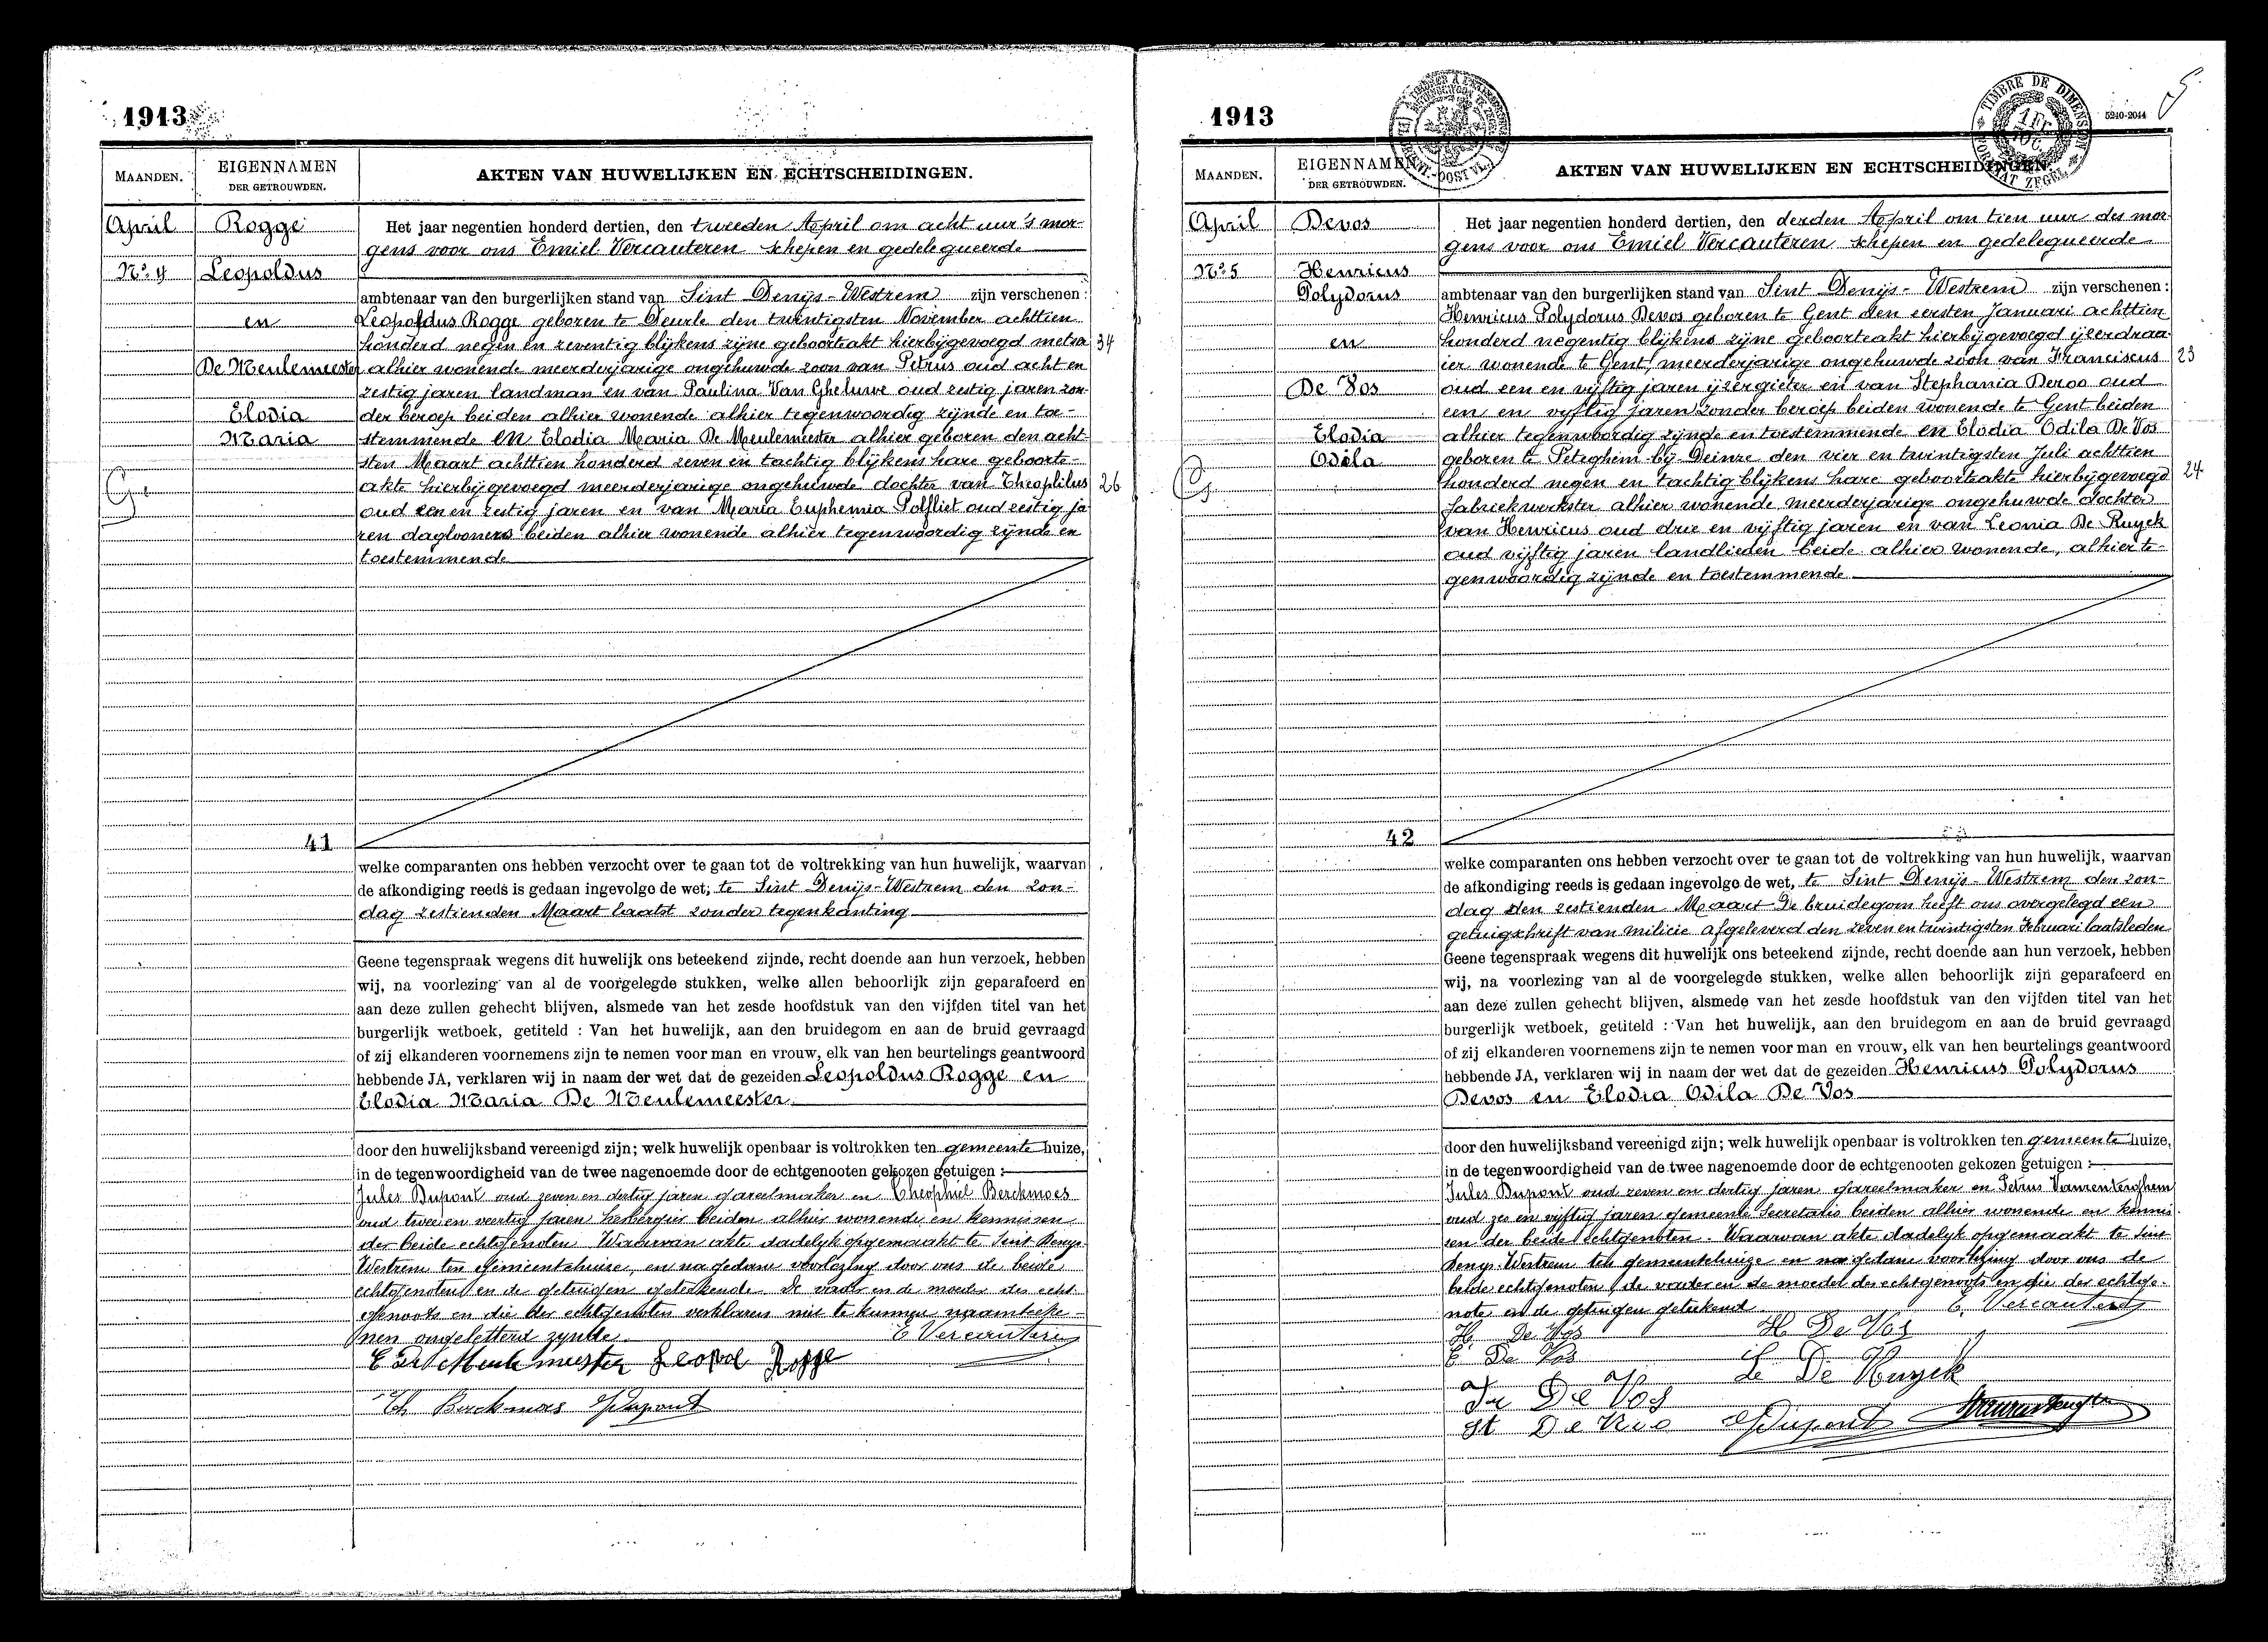 1913
MAANDEN.
EIGENNAMEN
DER GETROUWDEN.
AKTEN VAN HUWELIJKEN EN ECHTSCHEIDINGEN.
April
Nº 4
Rogge
Leopoldus
en
De Meulemeester
Elodia
Maria
41
Het jaar negentien honderd dertien, den tweeden April om acht uur 's mor-
gens voor ons Emiel Vercauteren schepen en gedelegueerde
ambtenaar van den burgerlijken stand van Sint Denijs-Westrem zijn verschenen:
Leopoldus Rogge geboren te Deurle den twintigsten November achttien
honderd negen en zeventig blijkens zijne geboorteakt hierbijgevoegd metser 34
alhier wonende meerderjarige ongehuwde zoon van Petrus oud acht en
zestig jaren landman en van Paulina Van Gheluwe oud zestig jaren zon-
der beroep beiden alhier wonende alhier tegenwoordig zijnde en toe-
stemmende en Elodia Maria De Meulemeester alhier geboren den acht-
sten Maart achttien honderd zeven en tachtig blijkens hare geboorte-
akte hierbijgevoegd meerderjarige ongehuwde dochter van Theophilus 26
oud een en zestig jaren en van Maria Euphemia Polfliet oud zestig ja
ren daglooners beiden alhier wonende alhier tegenwoordig zijnde en
toestemmende
welke comparanten ons hebben verzocht over te gaan tot de voltrekking van hun huwelijk, waarvan
de afkondiging reeds is gedaan ingevolge de wet, te Sint Denijs-Westrem den zon-
dag zestienden Maart laatst zonder tegenkanting
Geene tegenspraak wegens dit huwelijk ons beteekend zijnde, recht doende aan hun verzoek, hebben
wij, na voorlezing van al de voorgelegde stukken, welke allen behoorlijk zijn geparafeerd en
aan deze zullen gehecht blijven, alsmede van het zesde hoofdstuk van den vijfden titel van het
burgerlijk wetboek, getiteld : Van het huwelijk, aan den bruidegom en aan de bruid gevraagd
of zij elkanderen voornemens zijn te nemen voor man en vrouw, elk van hen beurtelings geantwoord
hebbende JA, verklaren wij in naam der wet dat de gezeiden Leopoldus Rogge en
Elodia Maria De Meulemeester
door den huwelijksband vereenigd zijn; welk huwelijk openbaar is voltrokken ten gemeente huize,
in de tegenwoordigheid van de twee nagenoemde door de echtgenooten gekozen getuigen :
Jules Dupont oud zeven en dertig jaren gareelmaker en Theophiel Berckmoes
oud twee en veertig jaren herbergier beiden alhier wonende en kennissen
der beide echtgenoten. Waarvan akte dadelyk opgemaakt te Sint Denys-
Westrem ten gemeentehuize, en na gedane voorlezing door ons de beide
echtgenoten en de getuigen geteekend. De vader en de moeder des echt-
genoots en die der echtgenoten verklaren niet te kunnen naamteeke-
nen ongeletterd zynde. E Vercauteren
E De Meulemeester Leopol Rogge
Th Berckmoes J Dupont
1913
TIMBRE DE DIMENSION
5240-2044
5
MAANDEN.
EIGENNAMEN
DER GETROUWDEN.
AKTEN VAN HUWELIJKEN EN ECHTSCHEIDINGEN.
April
Nº 5
Devos
Henricus
Polydorus
en
De Vos
Elodia
Odila
42
Het jaar negentien honderd dertien, den derden April om tien uur des mor-
gens voor ons Emiel Vercauteren schepen en gedelegueerde
ambtenaar van den burgerlijken stand van Sint Denijs-Westrem zijn verschenen:
Henricus Polydorus Devos geboren te Gent den eersten Januari achttien
honderd negentig blijkens zijne geboorteakt hierbijgevoegd ijzerdraa-
ier wonende te Gent, meerderjarige ongehuwde zoon van Franciscus 23
oud een en vijftig jaren ijzergieter en van Stephania Deroo oud
een en vijftig jaren zonder beroep beiden wonende te Gent beiden
alhier tegenwoordig zijnde en toestemmende en Elodia Odila De Vos
geboren te Peteghem bij Deinze den vier en twintigsten Juli achttien
honderd negen en tachtig blijkens hare geboorteakte hierbijgevoegd 24
fabriekwerkster alhier wonende meerderjarige ongehuwde dochter
van Henricus oud drie en vijftig jaren en van Leonia De Ruyck
oud vijftig jaren landlieden beide alhier wonende, alhier te-
genwoordig zijnde en toestemmende
welke comparanten ons hebben verzocht over te gaan tot de voltrekking van hun huwelijk, waarvan
de afkondiging reeds is gedaan ingevolge de wet, te Sint Denijs-Westrem den zon-
dag den zestienden Maart De bruidegom heeft ons overgelegd een
getuigschrift van milicie afgeleverd den zeven en twintigsten Februari laatsleden
Geene tegenspraak wegens dit huwelijk ons beteekend zijnde, recht doende aan hun verzoek, hebben
wij, na voorlezing van al de voorgelegde stukken, welke allen behoorlijk zijn geparafeerd en
aan deze zullen gehecht blijven, alsmede van het zesde hoofdstuk van den vijfden titel van het
burgerlijk wetboek, getiteld : Van het huwelijk, aan den bruidegom en aan de bruid gevraagd
of zij elkanderen voornemens zijn te nemen voor man en vrouw, elk van hen beurtelings geantwoord
hebbende JA, verklaren wij in naam der wet dat de gezeiden Henricus Polydorus
Devos en Elodia Odila De Vos
door den huwelijksband vereenigd zijn; welk huwelijk openbaar is voltrokken ten gemeente huize,
in de tegenwoordigheid van de twee nagenoemde door de echtgenooten gekozen getuigen :
Jules Dupont oud zeven en dertig jaren gareelmaker en Petrus Vanrenterghem
oud zes en vyftig jaren gemeente secretaris beiden alhier wonende en kennis-
sen der beide echtgenoten. Waarvan akte dadelyk opgemaakt te Sint
Denys-Westrem ten gemeentehuize en na gedane voorlezing door ons de
beide echtgenoten, de vader en de moeder des echtgenoots en die der echtge-
note en de getuigen geteekend E. Vercauteren
H. De Vos H De Vos
E. De Vos L De Ruyck
De Vos
J Dupont